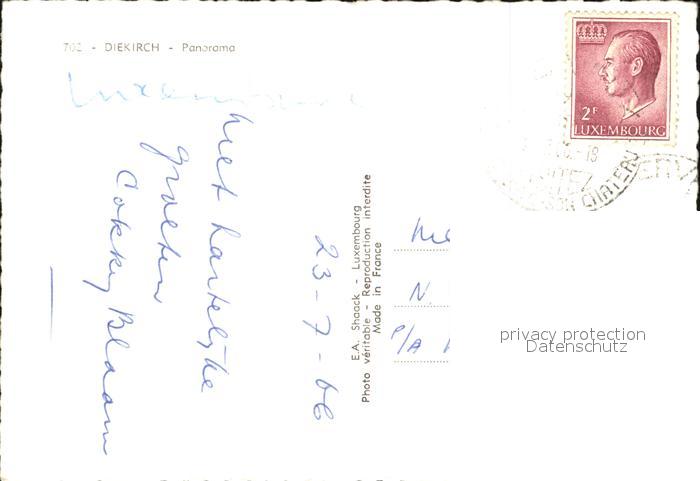 702 - DIEKIRCH - Panorama
Luxembourg
Met hartelijke
groeten
Cokky Blaauw
23-7-66
E.A. Shaack - Luxembourg
Photo véritable - Reproduction interdite
Made in France
N.
P/A
2F
LUXEMBOURG
privacy protection
Datenschutz